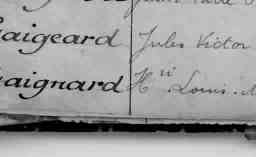 aigeard Jules Victor
aignard Hri Louis